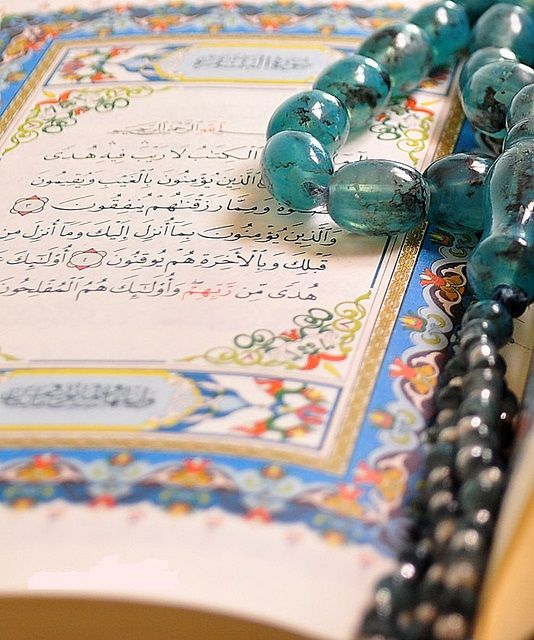 سُورَةُ الْبَقَرَةِ
الله الرَّحْمٰنِ الرَّحِيمِ
الْكِتَبُ لَا رَيْبَ فِيهِ هُدًى
الَّذِينَ يُؤْمِنُونَ بِالْغَيْبِ وَيُقِيمُونَ
وَمِمَّا رَزَقْنٰهُمْ يُنفِقُونَ ٣
وَالَّذِينَ يُؤْمِنُونَ بِمَا أُنزِلَ إِلَيْكَ وَمَا أُنزِلَ مِن
قَبْلِكَ وَبِالْآخِرَةِ هُمْ يُوقِنُونَ ٤ أُوْلَٰئِكَ
هُدًى مِّن رَّبِّهِمْ وَأُوْلَٰئِكَ هُمُ الْمُفْلِحُونَ